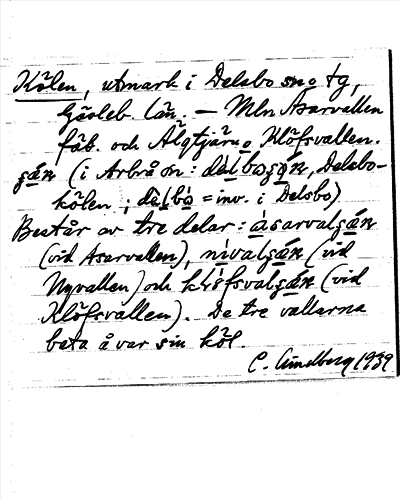 Kölen, utmark i Delsbo sn o tg,
Gävleb. län. – Mln Åsarvallen
fäb. och Älgtjärn o Klöfsvallen.
(i Arbrå sn: Delsbo-
kölen; = inv. i Delsbo)
Består av tre delar:
(vid Åsarvallen), (vid
Nyvallen) och (vid
Klöfsvallen). De tre vallarna
beta å var sin köl.
C. Lindberg 1939